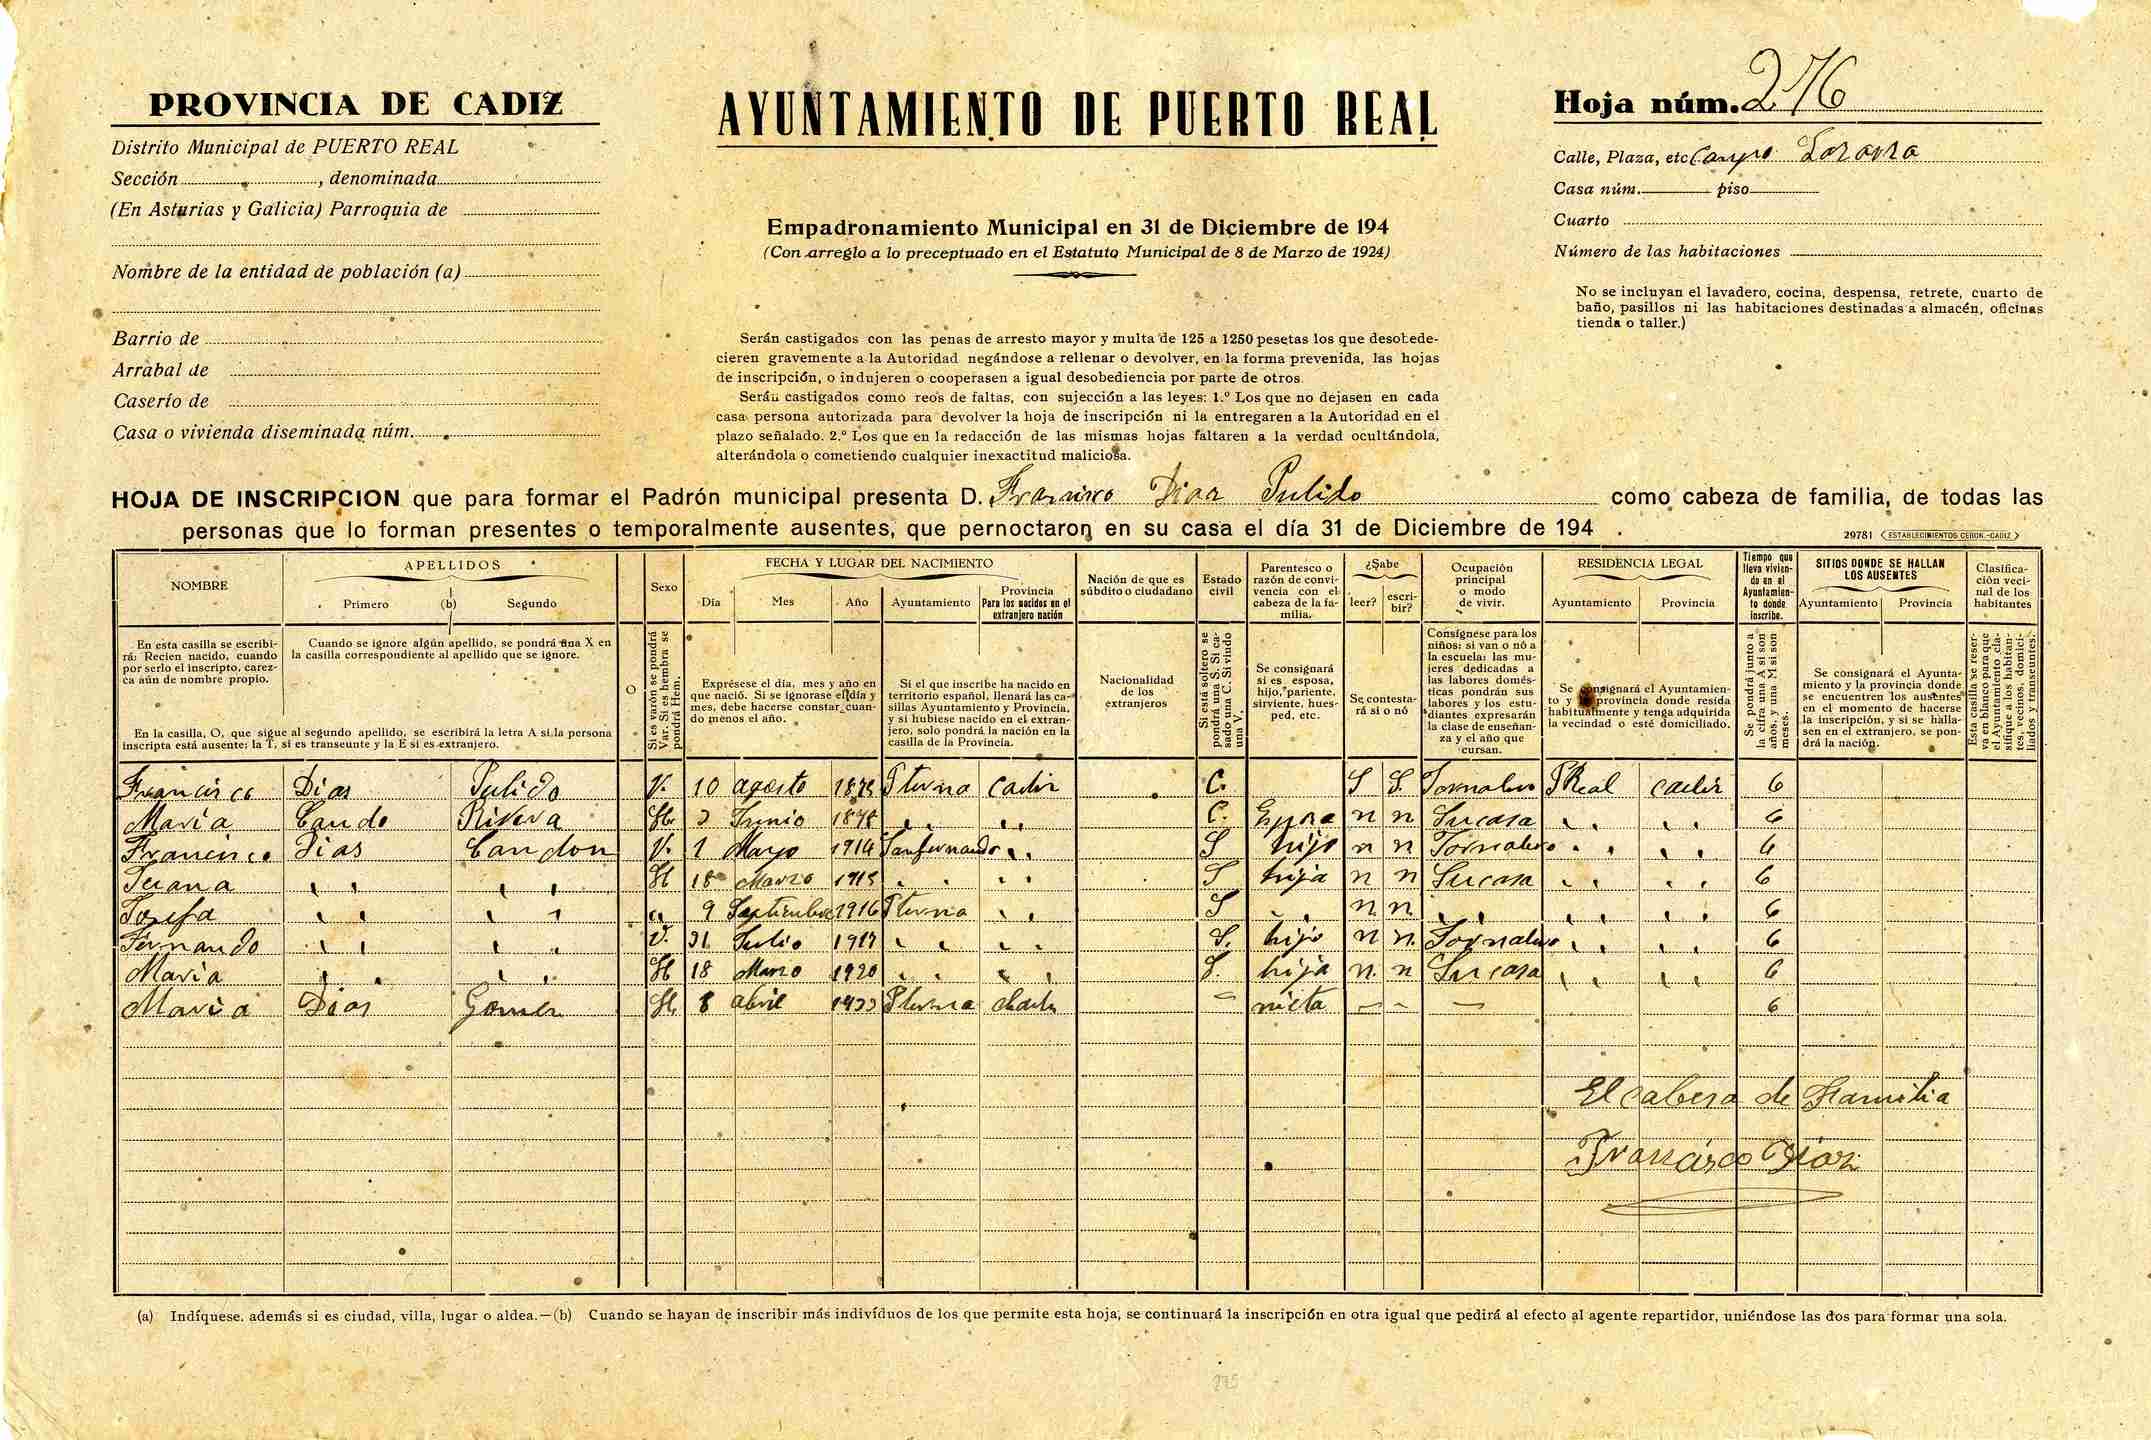 PROVINCIA DE CADIZ
Distrito Municipal de PUERTO REAL
Sección , denominada
(En Asturias y Galicia) Parroquia de
Nombre de la entidad de población (a)
Barrio de
Arrabal de
Caserío de
Casa o vivienda diseminada núm.
AYUNTAMIENTO DE PUERTO REAL
Empadronamiento Municipal en 31 de Diciembre de 194
(Con arreglo a lo preceptuado en el Estatuto Municipal de 8 de Marzo de 1924)
Serán castigados con las penas de arresto mayor y multa de 125 a 1250 pesetas los que desobede-
cieren gravemente a la Autoridad negándose a rellenar o devolver, en la forma prevenida, las hojas
de inscripción, o indujeren o cooperasen a igual desobediencia por parte de otros.
Serán castigados como reos de faltas, con sujección a las leyes: 1.º Los que no dejasen en cada
casa persona autorizada para devolver la hoja de inscripción ni la entregaren a la Autoridad en el
plazo señalado. 2.º Los que en la redacción de las mismas hojas faltaren a la verdad ocultándola,
alterándola o cometiendo cualquier inexactitud maliciosa.
Hoja núm. 276
Calle, Plaza, etc Campo
Casa núm. piso
Cuarto
Número de las habitaciones
No se incluyan el lavadero, cocina, despensa, retrete, cuarto de
baño, pasillos ni las habitaciones destinadas a almacén, oficinas
tienda o taller.)
HOJA DE INSCRIPCION que para formar el Padrón municipal presenta D. Francisco Diaz Pulido como cabeza de familia, de todas las
personas que lo forman presentes o temporalmente ausentes, que pernoctaron en su casa el día 31 de Diciembre de 194 .
29781 ESTABLECIMIENTOS CERON.-CADIZ
NOMBRE
En esta casilla se escribi-
rá: Recien nacido, cuando
por serlo el inscripto, carez-
ca aún de nombre propio.
APELLIDOS
Primero (b) Segundo
Cuando se ignore algún apellido, se pondrá una X en
la casilla correspondiente al apellido que se ignore.
En la casilla, O, que sigue al segundo apellido, se escribirá la letra A si la persona
inscripta está ausente: la T, si es transeunte y la E si es extranjero.
O
Sexo
Si es varón se pondrá
Var. Si es hembra se
pondrá Hem.
FECHA Y LUGAR DEL NACIMIENTO
Día Mes Año Ayuntamiento
Provincia
Para los nacidos en el
extranjero nación
Exprésese el día, mes y año en
que nació. Si se ignorase el día y
mes, debe hacerse constar cuan-
do menos el año.
Si el que inscribe ha nacido en
territorio español, llenará las ca-
sillas Ayuntamiento y Provincia,
y si hubiese nacido en el extran-
jero, solo pondrá la nación en la
casilla de la Provincia.
Nación de que es
súbdito o ciudadano
Nacionalidad
de los
extranjeros
Estado
civil
Si está soltero se
pondrá una S. Si ca-
sado una C. Si viudo
una V.
Parentesco o
razón de convi-
vencia con el
cabeza de la fa-
milia.
Se consignará
si es esposa,
hijo, pariente,
sirviente, hues-
ped, etc.
¿Sabe
leer? escri-
bir?
Se contesta-
rá si o nó
Ocupación
principal
o modo
de vivir.
Consígnese para los
niños: si van o nó a
la escuela: las mu-
jeres dedicadas a
las labores domés-
ticas pondrán sus
labores y los estu-
diantes expresarán
la clase de enseñan-
za y el año que
cursan.
RESIDENCIA LEGAL
Ayuntamiento Provincia
Se consignará el Ayuntamien-
to y la provincia donde resida
habitualmente y tenga adquirida
la vecindad o esté domiciliado.
Tiempo que
lleva vivien-
do en el
Ayuntamien-
to donde
inscribe.
Se pondrá junto a
la cifra una A si son
años, y una M si son
meses.
SITIOS DONDE SE HALLAN
LOS AUSENTES
Ayuntamiento Provincia
Se consignará el Ayunta-
miento y la provincia donde
se encuentren los ausentes
en el momento de hacerse
la inscripción, y si se halla-
sen en el extranjero, se pon-
drá la nación.
Clasifica-
ción veci-
nal de los
habitantes
Esta casilla se reser-
va en blanco para que
el Ayuntamiento cla-
sifique a los habitan-
tes, vecinos, domici-
liados y transeuntes.
Francisco Dias Pulido V. 10 agosto Pterna cadiz C. S S. Jornalero PReal cadiz 6
Maria Cando Rivera 3 Junio 1878 " " C. n n Su casa " " 6
Francisco Dias Candon V. 1 Mayo 1914 San fernando " S hijo n n Jornalero " " 6
Juana " " H 18 Marzo 1915 " " S hija n n Su casa " " 6
Josefa " " " 9 Septiembre 1916 Pterna " S " n n " " " 6
Fernando " " V. 31 Julio " " S. hijo n n. Jornalero " " 6
Maria " " H 18 Marzo 1920 " " S. hija n. n Su casa " " 6
Maria Dias Gomez H. 8 abril 1933 Pterna cadiz - nieta - - - 6
El cabeza de Familia
Francisco Díaz
(a) Indíquese, además si es ciudad, villa, lugar o aldea.—(b) Cuando se hayan de inscribir más indivíduos de los que permite esta hoja, se continuará la inscripción en otra igual que pedirá al efecto al agente repartidor, uniéndose las dos para formar una sola.